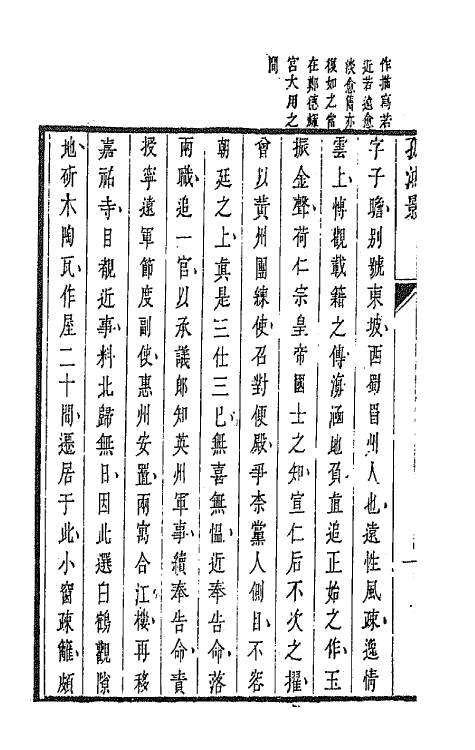 作描寫若
近若遠愈
淡愈舊亦
復如之當
在鄭德輝
宮大用之
間
孤鴻影
一
字子瞻别號東坡西蜀眉州人也遠性風疎逸情
雲上慱觀載籍之傳海涵地負直追正始之作玉
振金聲荷仁宗皇帝國士之知宣仁后不次之擢
曾以黄州團練使召對便殿爭柰黨人側目不容
朝廷之上真是三仕三巳無喜無愠近奉告命落
兩職追一官以承議郎知英州軍事續奉告命責
授寧遠軍節度副使惠州安置兩寓合江樓再移
嘉祐寺目覩近事料北歸無日因此選白鶴觀隙
地斫木陶瓦作屋二十間遷居于此小窗疎籬頗